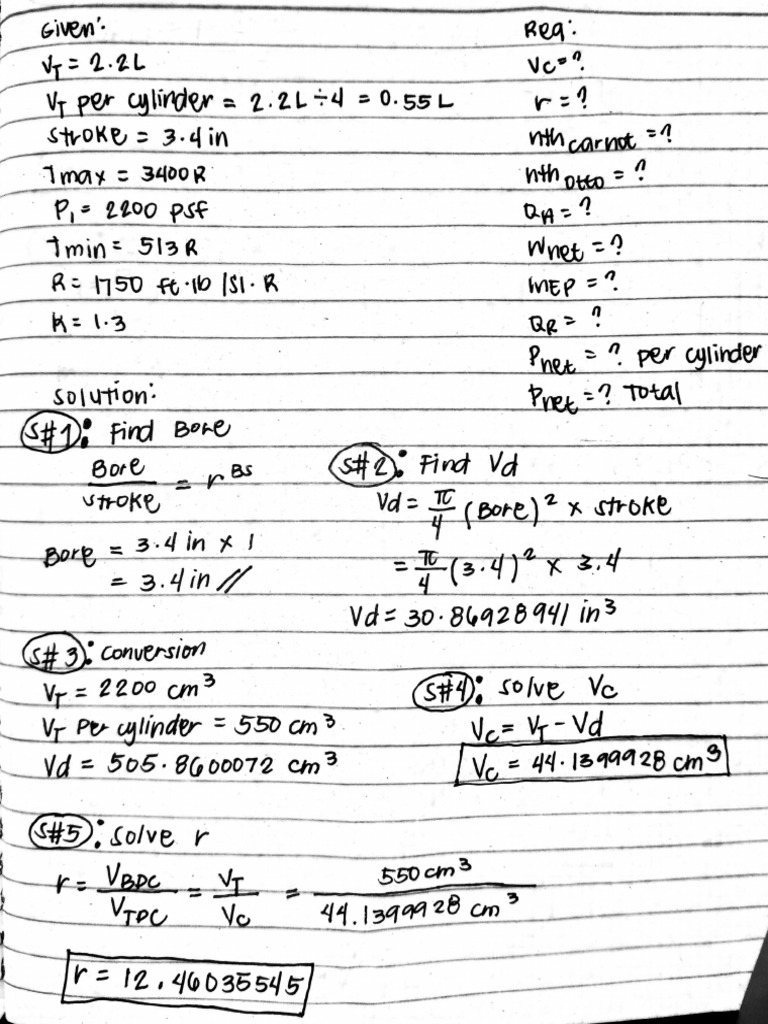 Given:
V_T = 2.2L
V_T per cylinder = 2.2L ÷ 4 = 0.55L
stroke = 3.4 in
Tmax = 3400R
P₁ = 2200 psf
Tmin = 513R
R = 1750 ft·lb/Sl·R
K = 1.3
Req:
Vc = ?
r = ?
nth carnot = ?
nth otto = ?
Q_A = ?
Wnet = ?
mEP = ?
Q_R = ?
Pnet = ? per cylinder
Pnet = ? Total
solution:
S#1: Find Bore
Bore / stroke = r BS
Bore = 3.4 in x 1
= 3.4 in //
S#2: Find Vd
Vd = π/4 (Bore)² x stroke
= π/4 (3.4)² x 3.4
Vd = 30.86928941 in³
S#3: conversion
V_T = 2200 cm³
V_T Per cylinder = 550 cm³
Vd = 505.8600072 cm³
S#4: solve Vc
Vc = V_T - Vd
Vc = 44.1399928 cm³
S#5: solve r
r = V_BDC / V_TDC = V_T / Vc = 550 cm³ / 44.1399928 cm³
r = 12.46035545